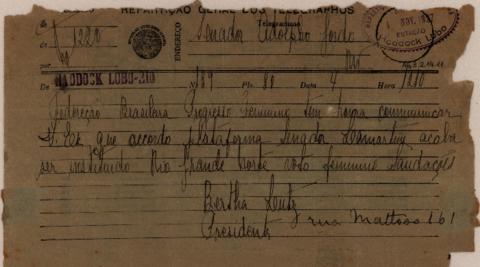 REPARTIÇÃO GERAL DOS TELEGRAPHOS
Telegramma
De 1220
ENDEREÇO
Senador Adolpho Gordo
Rio
NOV.
ESTAÇÃO
Haddock Lobo
por
De HADDOCK LOBO-RIO N. 189 Pls. 80 Data 4 Hora 1210
Federação Brasileira Progresso Feminino tem honra communicar
V. Exa que accordo plataforma Senador Lamartine acaba
ser instituido Rio Grande Norte voto feminino Saudações
Bertha Lutz
Presidente rua Mattoso 161